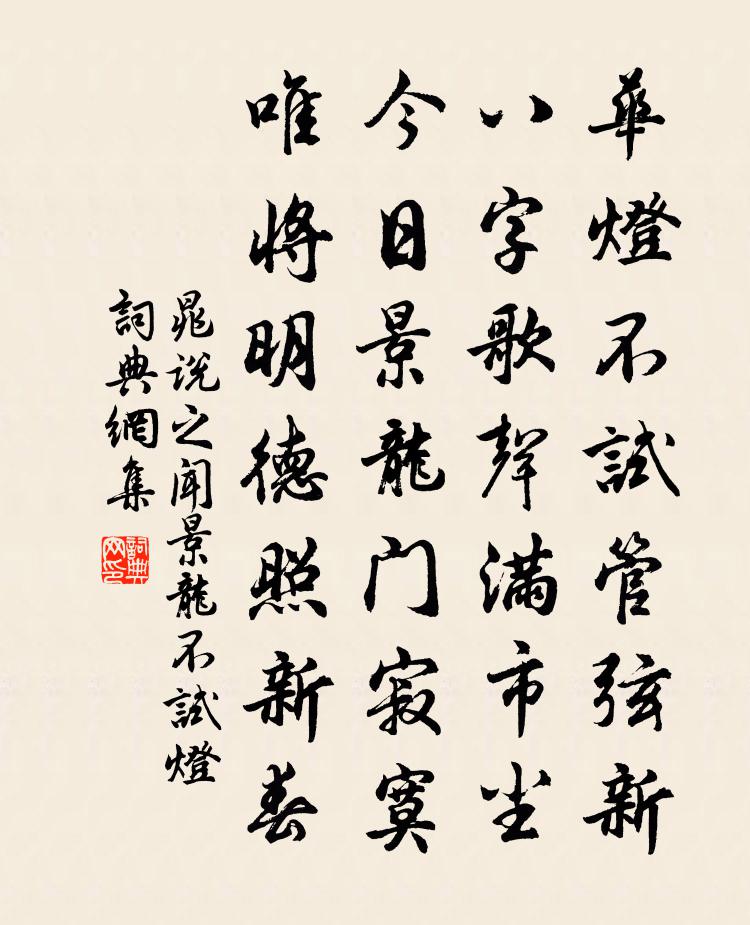 華燈不試管弦新
八字歌聲滿市尘
今日景龍门寂寞
唯將明德照新春
晁説之聞景龍不試燈
詞典網集
詞典网印